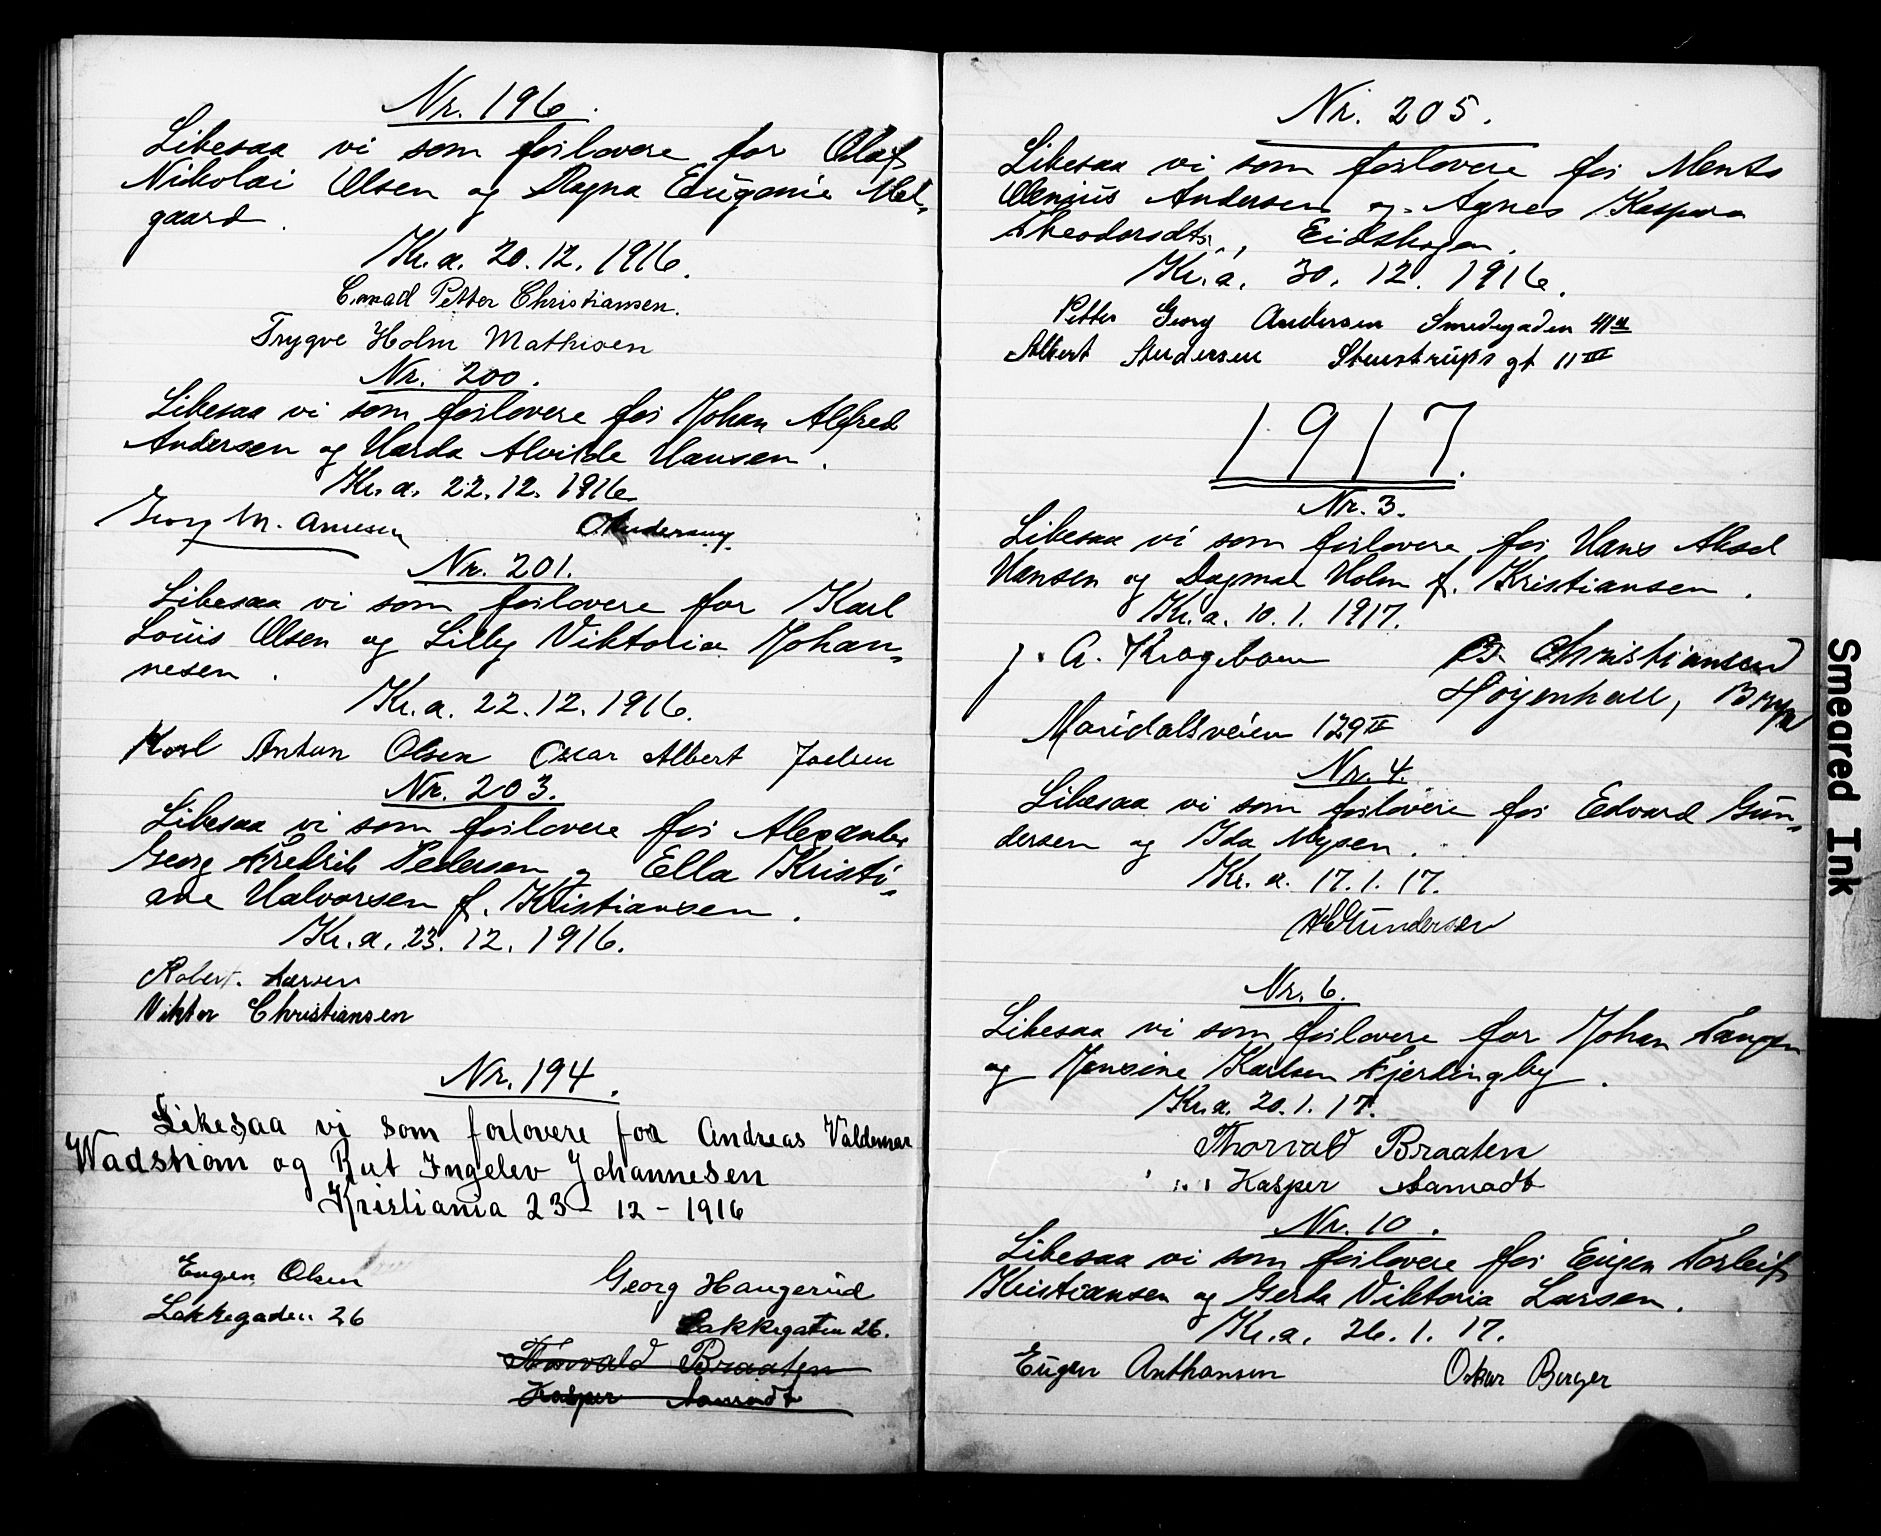 Nr. 196.
Likesaa vi som forlovere for Olaf
Nikolai Olsen og Magna Eugenie Mel-
gaard.
Kr.a. 20.12.1916.
Conrad Petter Christiansen.
Trygve Holm Mathisen
Nr. 200.
Likesaa vi som forlovere for Johan Alfred
Andersen og Harda Alvilde Hansen.
Kr.a. 22.12.1916
Georg M. Arnesen
Nr. 201.
Likesaa vi som forlovere for Karl
Louis Olsen og Lilly Viktoria Johan-
nesen.
Kr.a. 22.12.1916.
Karl Anton Olsen Oscar Albert Joelsen
Nr. 203.
Likesaa vi som forlovere for Alexander
Georg Fredrik Pedersen og Ella Kristi-
ane Halvorsen f. Kristiansen.
Kr.a. 23.12.1916.
Robert. Larsen
Viktor Christiansen
Nr. 194.
Likesaa vi som forlovere for Andreas Valdemar
Wadstrøm og Rut Ingelev Johannesen
Kristiania 23 - 12 - 1916
Eugen Olsen Georg Haugerud
Lakkegaden 26 Lakkegaten 26.
Thorvald Braaten
Kasper Aamodt
Nr. 205.
Likesaa vi som forlovere for Mentz
Olenius Andersen og Agnes Kaspara
Theodorsdtr., Eidskogen.
Kr.a. 30.12.1916.
Petter Georg Andersen Smedegaden 41
Albert Andersen Stenstrups gt 11 III
1917.
Nr. 3.
Likesaa vi som forlovere for Hans Aksel
Hansen og Dagmar Holm f. Kristiansen.
Kr.a. 10.1.1917.
J. A. Krogebom Christiansen
Høyenhall, Bryn
Maridalsveien 129 IV
Nr. 4.
Likesaa vi som forlovere for Edvard Gun-
dersen og Ida Mysen.
Kr.a. 17.1.17.
Gundersen
Nr. 6.
Likesaa vi som forlovere for Johan Tangen
og Jensine Karlsen Fjerdingby.
Kr.a. 20.1.17.
Thorvald Braaten
Kasper Aamodt
Nr. 10.
Likesaa vi som forlovere for Eugen Torleif
Kristiansen og Gerda Viktoria Larsen.
Kr.a. 26.1.17.
Eugen Anthonsen Oskar Berger
Smeared Ink